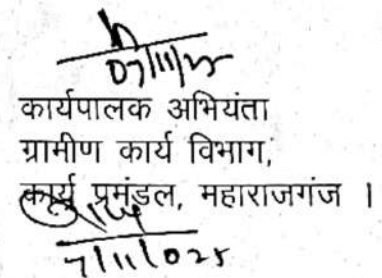 07/11/25
कार्यपालक अभियंता
ग्रामीण कार्य विभाग,
कार्य प्रमंडल, महाराजगंज ।
7/11/025